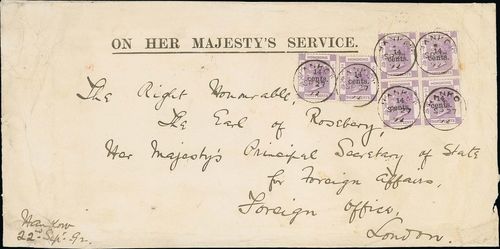 ON HER MAJESTY'S SERVICE.
14 cents.
14 cents.
14 cents.
14 cents.
14 cents.
14 cents.
HANKOW
The Right Honourable,
The Earl of Rosebery,
Her Majesty's Principal Secretary of State
for Foreign Affairs,
Foreign Office,
London.
Hankow
22nd Sep. 92.